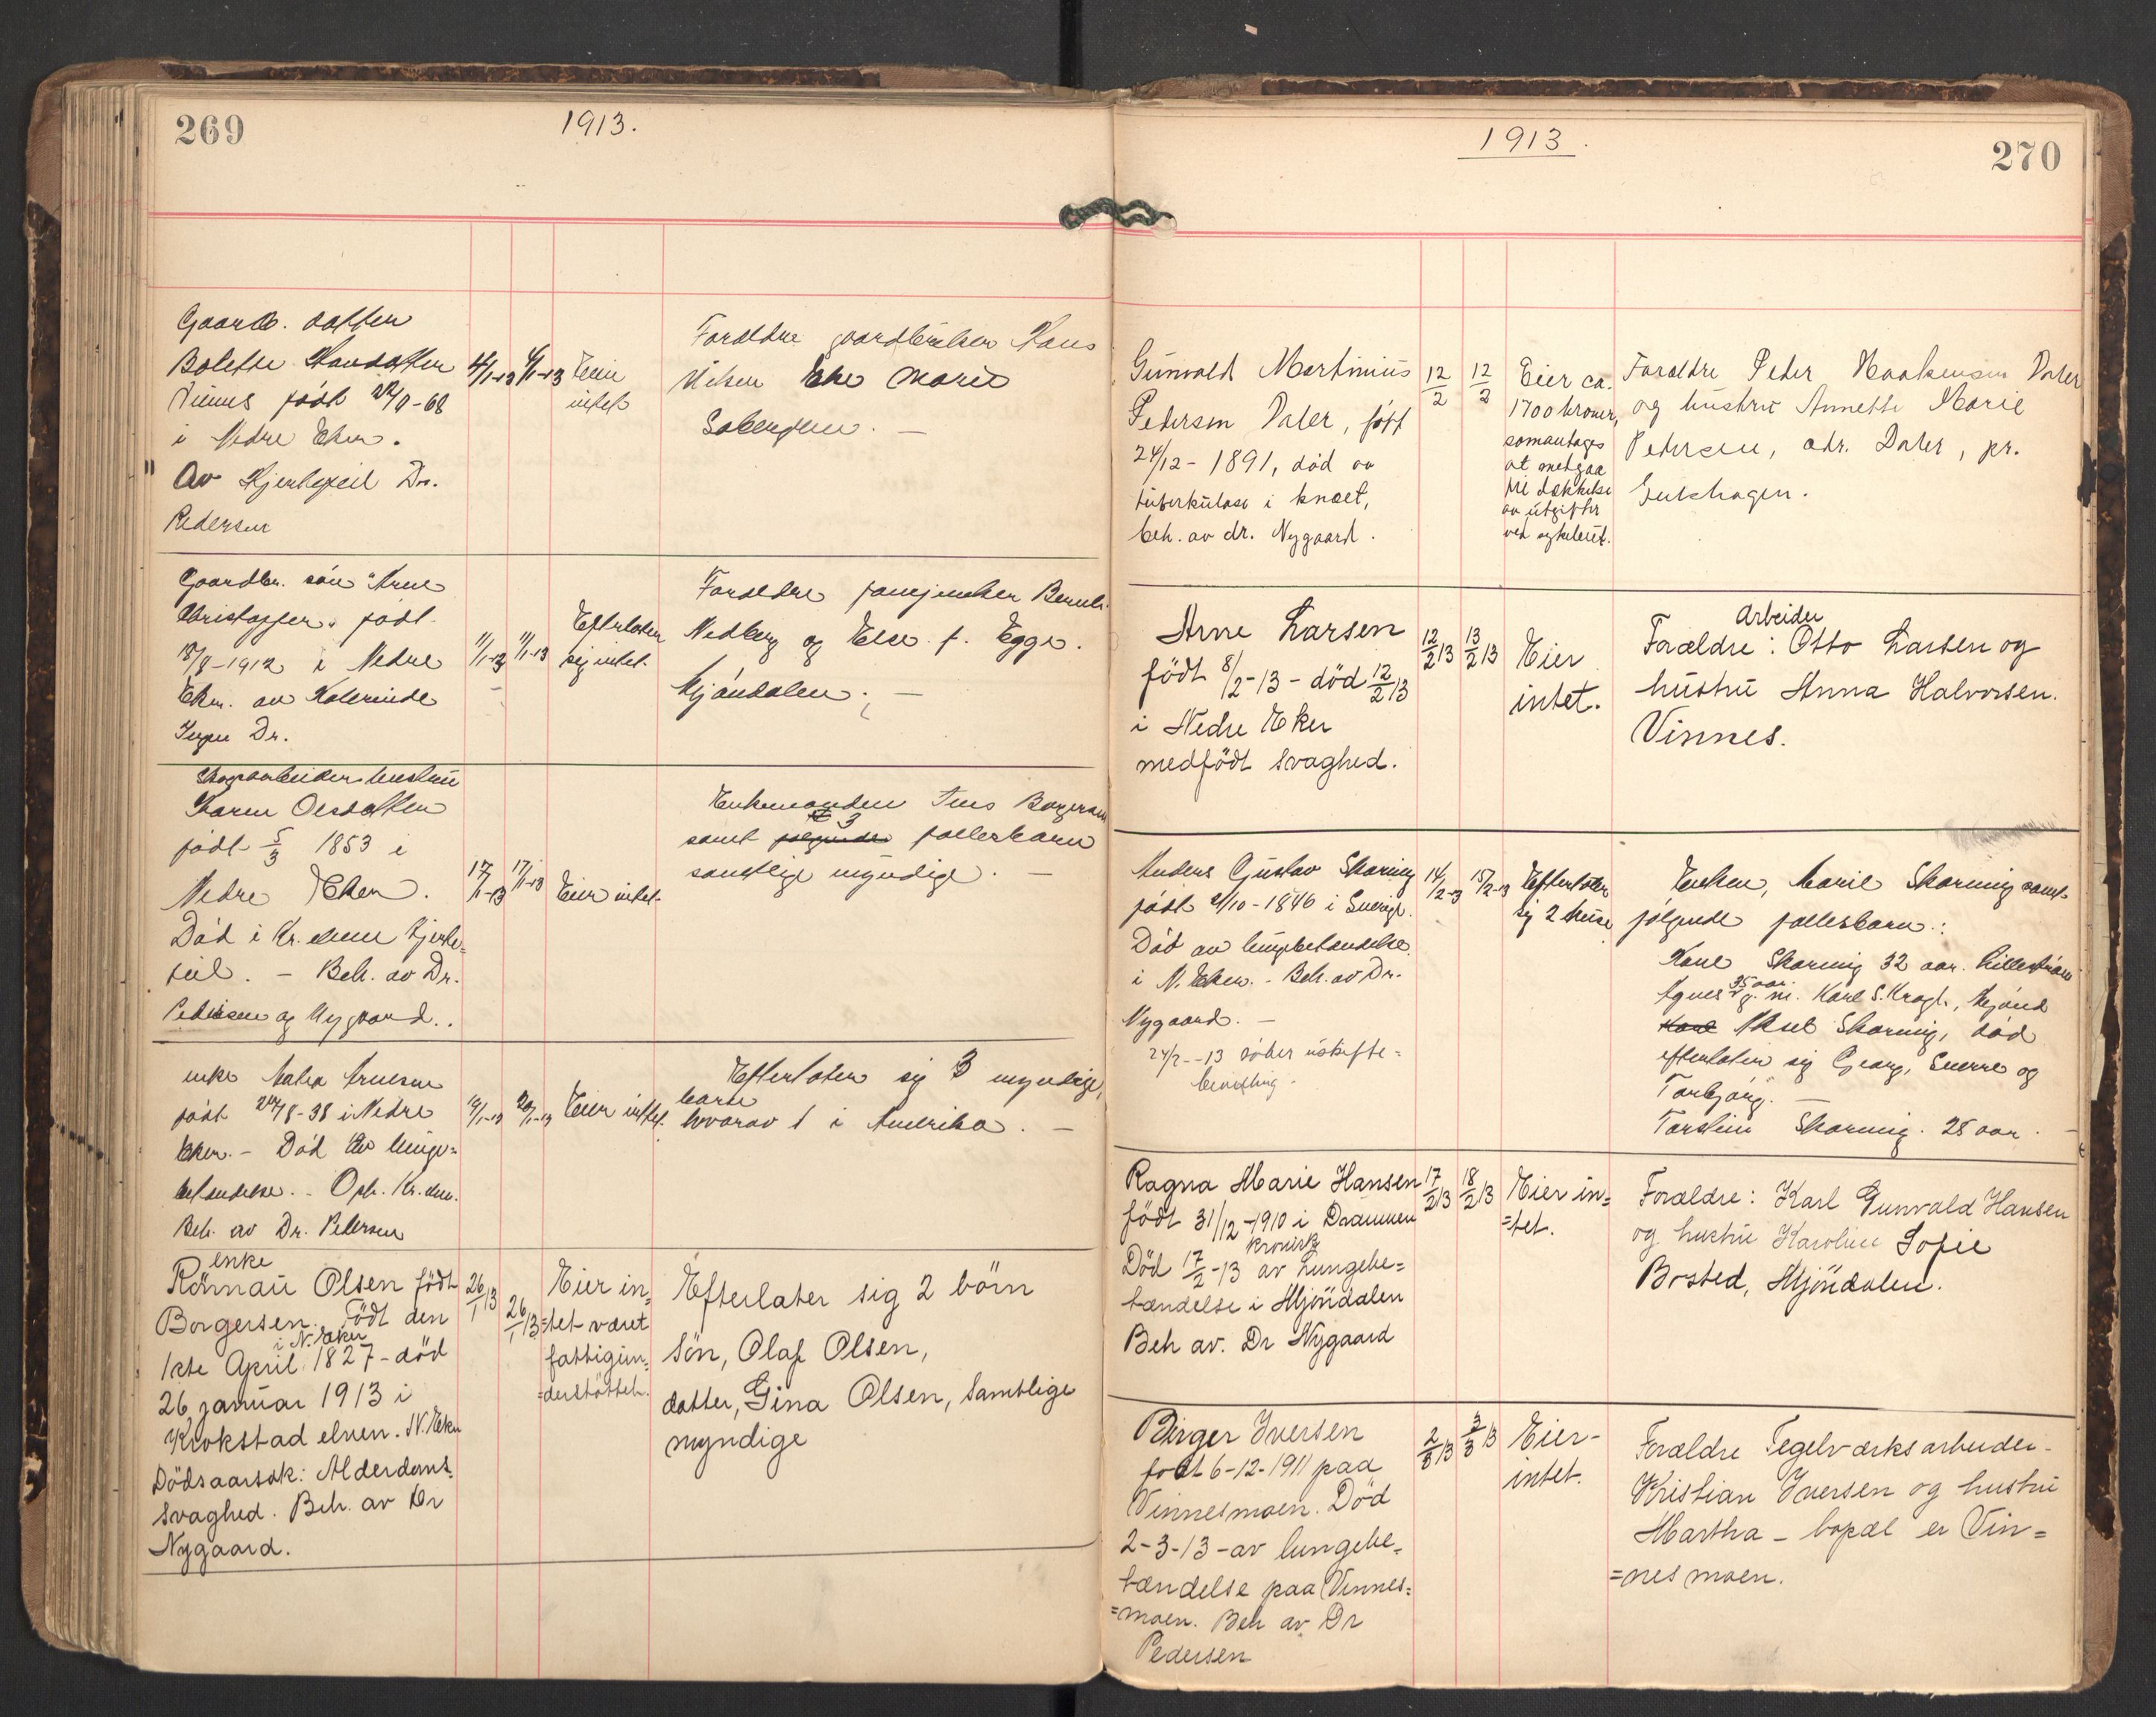 269
1913.
Gaardb. datter
Bolette Hansdatter
Vinnes født 22/9-68
i Nedre Eker.
Av Hjertefeil Dr.
Pedersen
4/1-13
6/1-13
Eier
intet
Forældre gaardbruker Hans
Nilsen Eke Marie
Gaardbr. søn Arne
Kristoffer født
18/8-1912 i Nedre
Eker. av
Dr.
11/1-13
11/1-13
Efterlater
sig intet.
Forældre
Nedberg og Else f. Egge.
Mjöndalen.
Skogarbeider hustru
Karen Olsdatter
født 5/3 1853 i
Nedre Eker.
Död i Kr. elven hjerte=
feil. - Beh. av Dr.
Pedersen og Nygaard..
17/1-13
17/1-13
Eier intet.
Enkemanden Jens Borgersen
3
samt følgende fællesbarn
samtlige myndige. -
enke Maria Arnesen
født 24/8-38 i Nedre
Eker. - Död av lunge=
betændelse. - Oph. Kr. elven.
Beh. av Dr. Pedersen
19/1-13
20/1-13
Eier intet.
Efterlater sig 3 myndige,
barn
hvorav 1 i Amerika. -
enke
Rönnau Olsen født
Borgersen. Födt den
i N. Eker
1ste April 1827 - död
26 januar 1913 i
Krokstad elven. N. Eker
Dödsaarsak: Alderdoms=
svaghed. Beh. av Dr
Nygaard.
26/1 13
26/1 13
Eier in=
=tet været
fattigun=
=derstöttet.
Efterlater sig 2 börn
Sön, Olaf Olsen,
datter, Gina Olsen, Samtlige
myndige
1913.
270
Gunvald Martinius
Pedersen Daler, født
24/12 - 1891, död av
tuberkulose i knæet,
beh. av dr. Nygaard.
12/2
12/2
Eier ca.
1700 kroner,
som antages
at medgaa
til dækkelse
av utgifter
ved sykeleiet.
Forældre Peder Haakensen Daler
og hustru Annette Marie
Pedersen, adr. Daler, pr.
Gulskogen.
Arne Larsen
født 8/2-13 - död 12/2 13
i Nedre Eker
medfödt svaghed.
12/2 13
13/2 13
Eier
intet.
Arbeider
Forældre: Otto Larsen og
hustru Anna Halvorsen.
Vinnes.
Anders Gustav Skarning
født 21/10-1846 i Sverige.
Död av lungebetændelse
i N. Eker. - Beh. av Dr.
Nygaard. -
24/2--13 söker uskifte=
bevilling.
14/2-13
15/2-13
Efterlater
sig 2 huse
Enken, Marie Skarning samt
følgende fællesbarn:
Karl Skarning 32 aar. Lilleström
35 aar.
Agnes g. m. Karl S. Krogh, Mjönd
Karl Aksel Skarning, död
efterlater sig Georg, Sverre og
Torbjörg. -
Torstein Skarning. 28 aar. -
Ragna Marie Hansen
født 31/12-1910 i Drammen
kronisk
Död 17/2-13 av Lungebe=
tændelse i Mjöndalen
Beh av. Dr Nygaard
17/2 13
18/2 13
Eier in=
=tet.
Forældre: Karl Gunvald Hansen
og hustru Karoline Sofie
Borsted, Mjöndalen.
Birger Iversen
født 6-12-1911 paa
Vinnesmoen. Död
2-3-13 - av lungebe=
tændelse paa Vinnes=
=moen. Beh av Dr
Pedersen
2/3 13
3/3 13
Eier-
intet.
Forældre Tegelverksarbeider-
Kristian Iversen og hustru
Martha - bopæl er Vin=
=nesmoen.